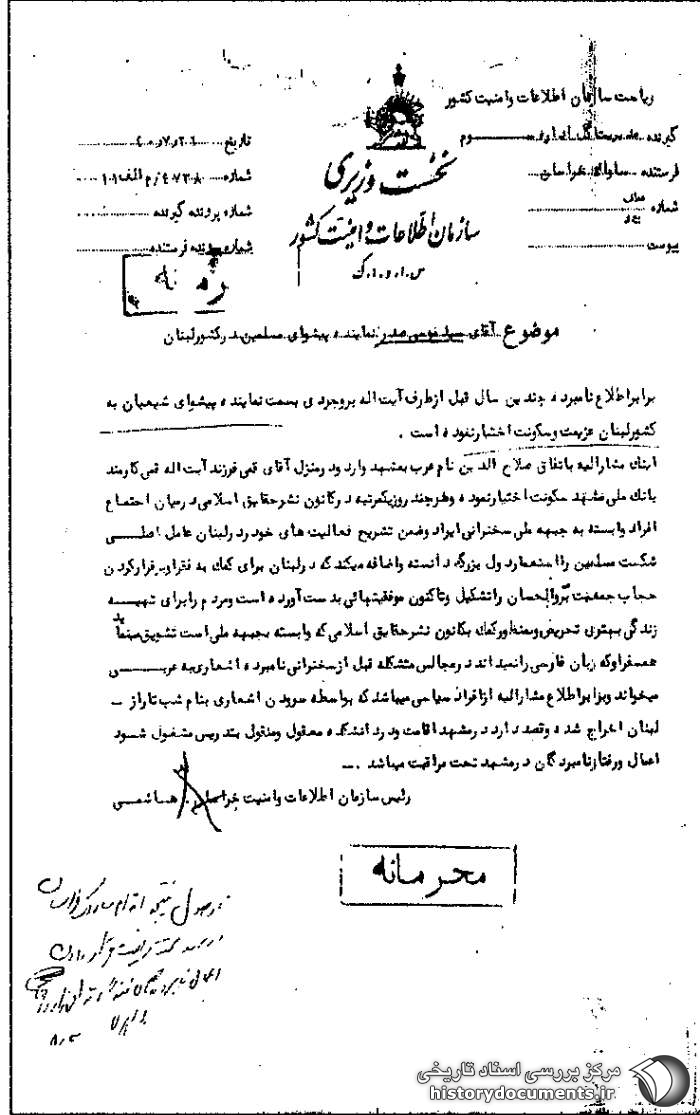 ریاست سازمان اطلاعات و امنیت کشور
گیرنده مدیریت کل اداره سوم
فرستنده ساواک خراسان
شماره
پیوست
نخست وزیری
سازمان اطلاعات و امنیت کشور
س.ا.و.ا.ک
تاریخ
شماره
شماره پرونده گیرنده
شماره پرونده فرستنده
موضوع آقای سید موسی صدر نماینده پیشوای مسلمین در کشور لبنان
برابر اطلاع نامبرده چندین سال قبل از طرف آیت اله بروجردی بسمت نماینده پیشوای شیعیان به
کشور لبنان عزیمت و سکونت اختیار نموده است .
اینک مشارالیه باتفاق صلاح الدین نام عرب بمشهد وارد و در منزل آقای قمی فرزند آیت اله قمی کارمند
بانک ملی مشهد سکونت اختیار نموده و هر چند روز یکمرتبه در کانون نشر حقایق اسلامی در میان اجتماع
افراد وابسته به جبهه ملی سخنرانی ایراد و ضمن تشریح فعالیت های خود در لبنان عامل اصلی
شکست مسلمین را استعمار دول بزرگ دانسته و اضافه میکند که در لبنان برای کمک به فقرا و برقرار کردن
حجاب جمعیت بر والاحسان را تشکیل و تاکنون موفقیتهائی بدست آورده است و مردم را برای تهیه
زندگی بهتری تحریص و بمنظور کمک بکانون نشر حقایق اسلامی که وابسته بجبهه ملی است تشویق مینماید
همسفر او که زبان فارسی را نمیداند در مجالس متشکله قبل از سخنرانی نامبرده اشعاری به عربی
میخواند و بنا بر اطلاع مشارالیه از افراد سیاسی میباشد که بواسطه سرودن اشعاری بنام شب تار از -
لبنان اخراج شده و قصد دارد در مشهد اقامت و در دانشکده معقول و منقول بتدریس مشغول شود
اعمال و رفتار نامبردگان در مشهد تحت مراقبت میباشد .-
رئیس سازمان اطلاعات و امنیت خراسان . هاشمی
محرمانه
مرکز بررسی اسناد تاریخی
historydocuments.ir